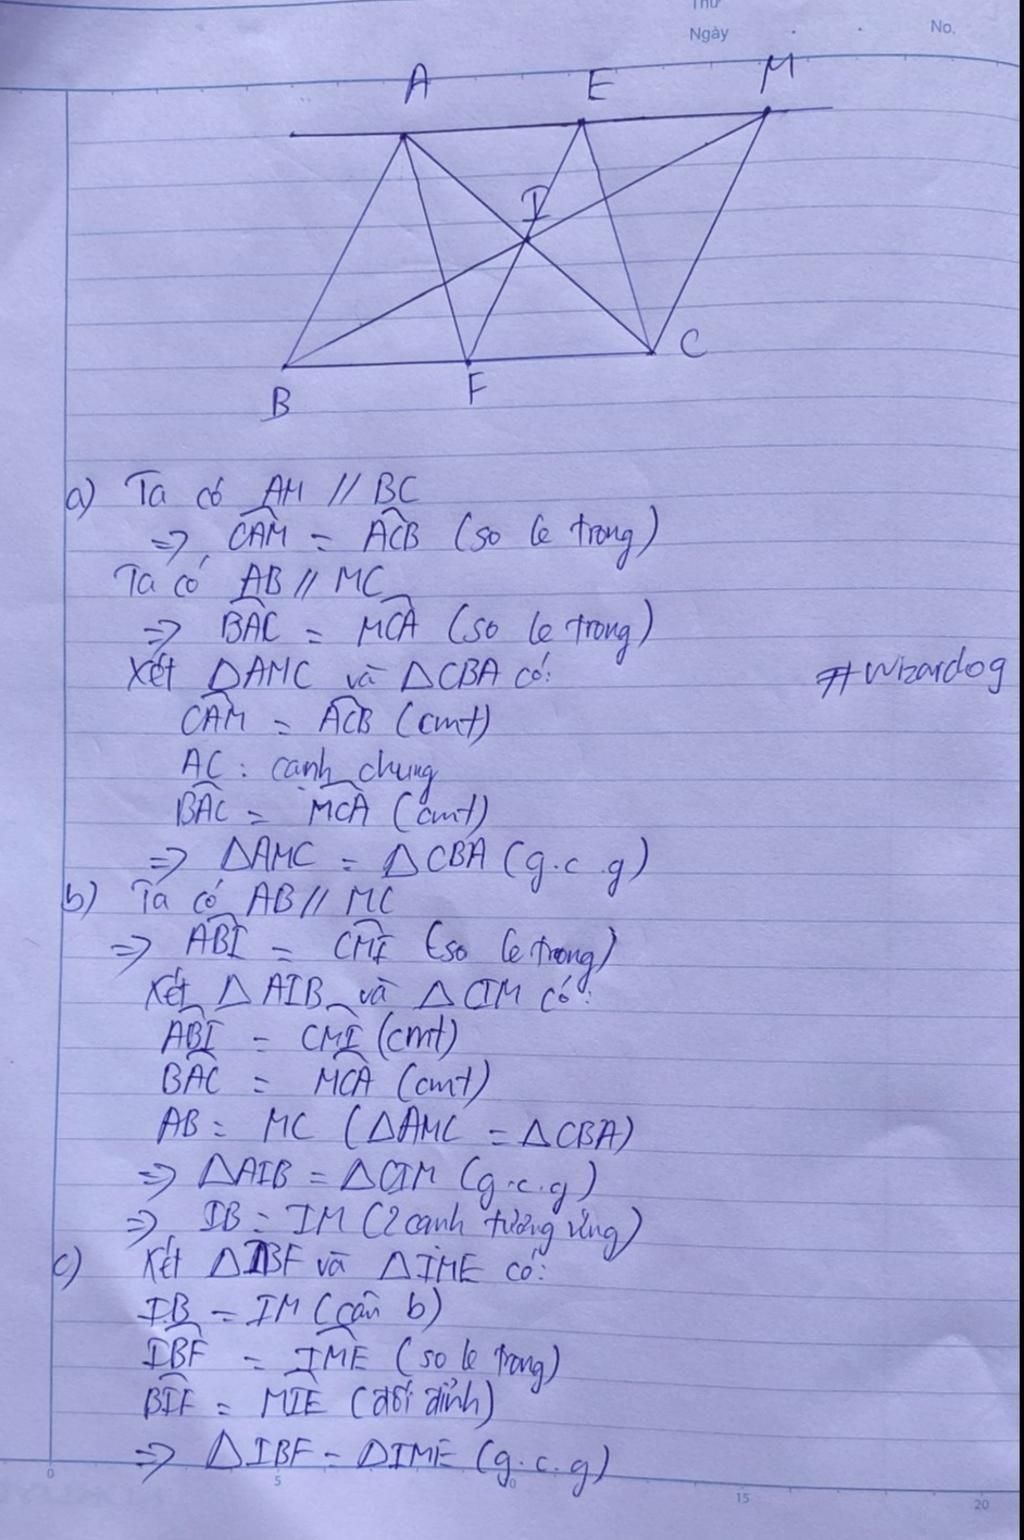 Thứ
Ngày
No.
A E M
I
B F C
a) Ta có AM // BC
=> CAM = ACB (so le trong)
Ta có AB // MC
=> BAC = MCA (so le trong)
Xét △AMC và △CBA có:
#wizardog
CAM = ACB (cmt)
AC : cạnh chung
BAC = MCA (cmt)
=> △AMC = △CBA (g.c.g)
b) Ta có AB // MC
=> ABI = CMI (so le trong)
Xét △AIB và △CIM có:
ABI = CMI (cmt)
BAC = MCA (cmt)
AB = MC (△AMC = △CBA)
=> △AIB = △CIM (g.c.g)
=> IB = IM (2 cạnh tương ứng)
c) Xét △IBF và △IME có:
IB = IM (câu b)
IBF = IME (so le trong)
BIF = MIE (đối đỉnh)
=> △IBF = △IME (g.c.g)
0 5 15 20